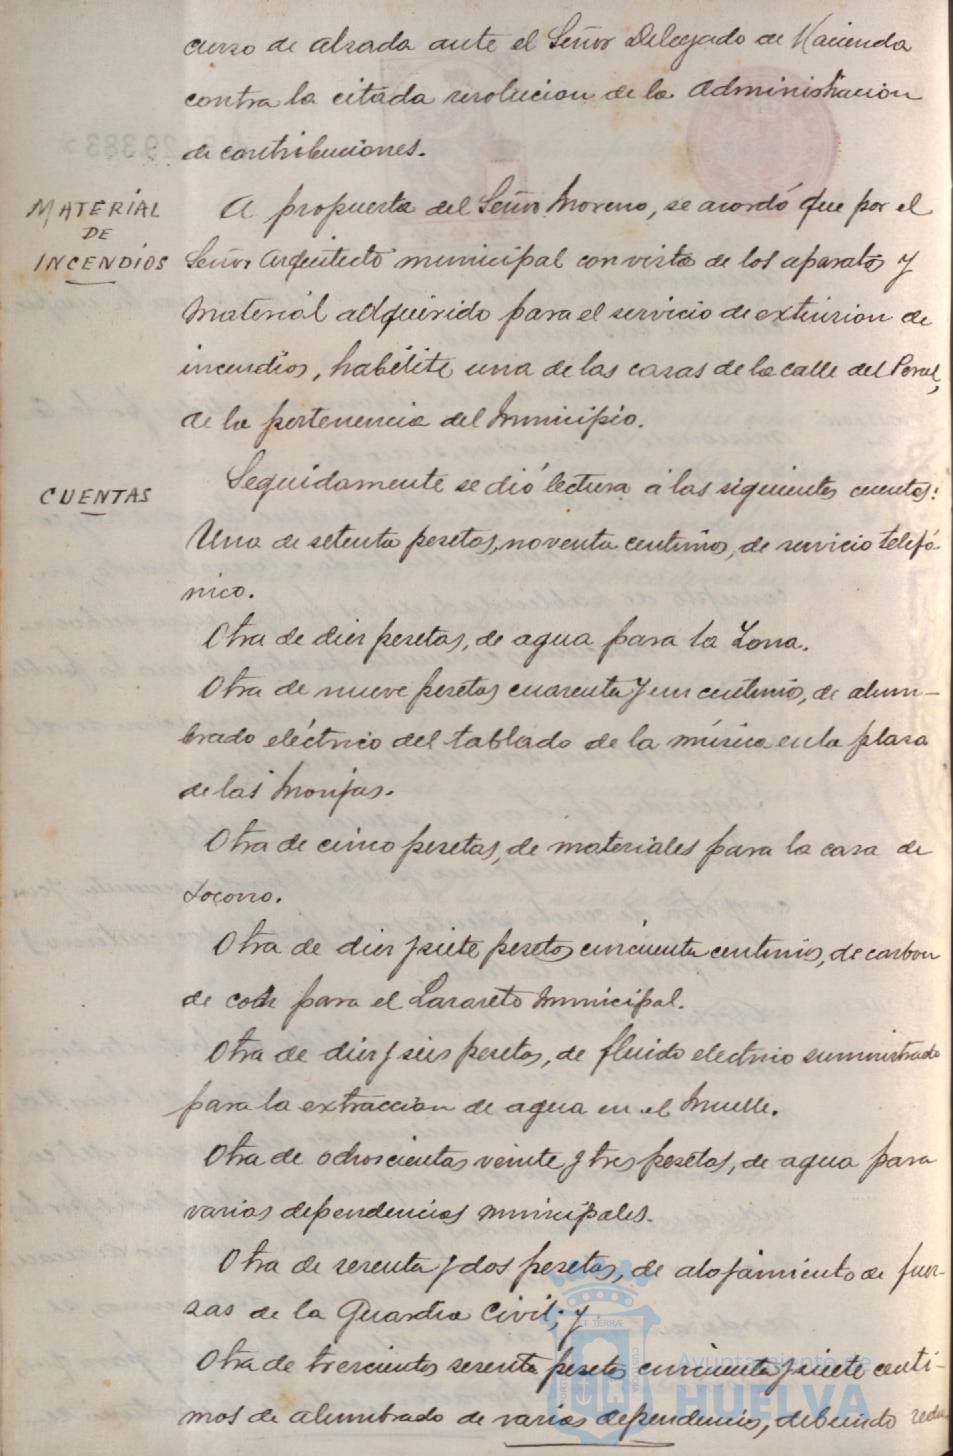 curso de alzada ante el Señor Delegado de Hacienda
contra la citada resolucion de la Administracion
de contribuciones.
MATERIAL
DE
INCENDIOS
A propuesta del Señor Moreno, se acordó que por el
Señor Arquitecto municipal con vista de los aparatos y
material adquirido para el servicio de extinsion de
incendios, habilite una de las casas de la calle del Peral,
de la pertenencia del Municipio.
CUENTAS
Seguidamente se dió lectura á las siguientes cuentas:
Una de setenta pesetas, noventa centimos, de servicio telefó
nico.
Otra de diez pesetas, de agua para la Zona.
Otra de nueve pesetas cuarenta y un centimos, de alum-
brado eléctrico del tablado de la música en la plaza
de las Monjas.
Otra de cinco pesetas, de materiales para la casa de
Socorro.
Otra de diez y siete pesetas cincuenta centimos, de carbon
de cock para el Lazareto Municipal.
Otra de diez y seis pesetas, de fluido electrico suministrado
para la extraccion de agua en el Muelle.
Otra de ochocientas veinte y tres pesetas, de agua para
varias dependencias municipales.
Otra de sesenta y dos pesetas, de alojamiento de fuer-
zas de la Guardia Civil; y
Otra de trescientas sesenta pesetas cincuenta y siete centi-
mos de alumbrado de varias dependencias, debiendo
Ayuntamiento de
HUELVA